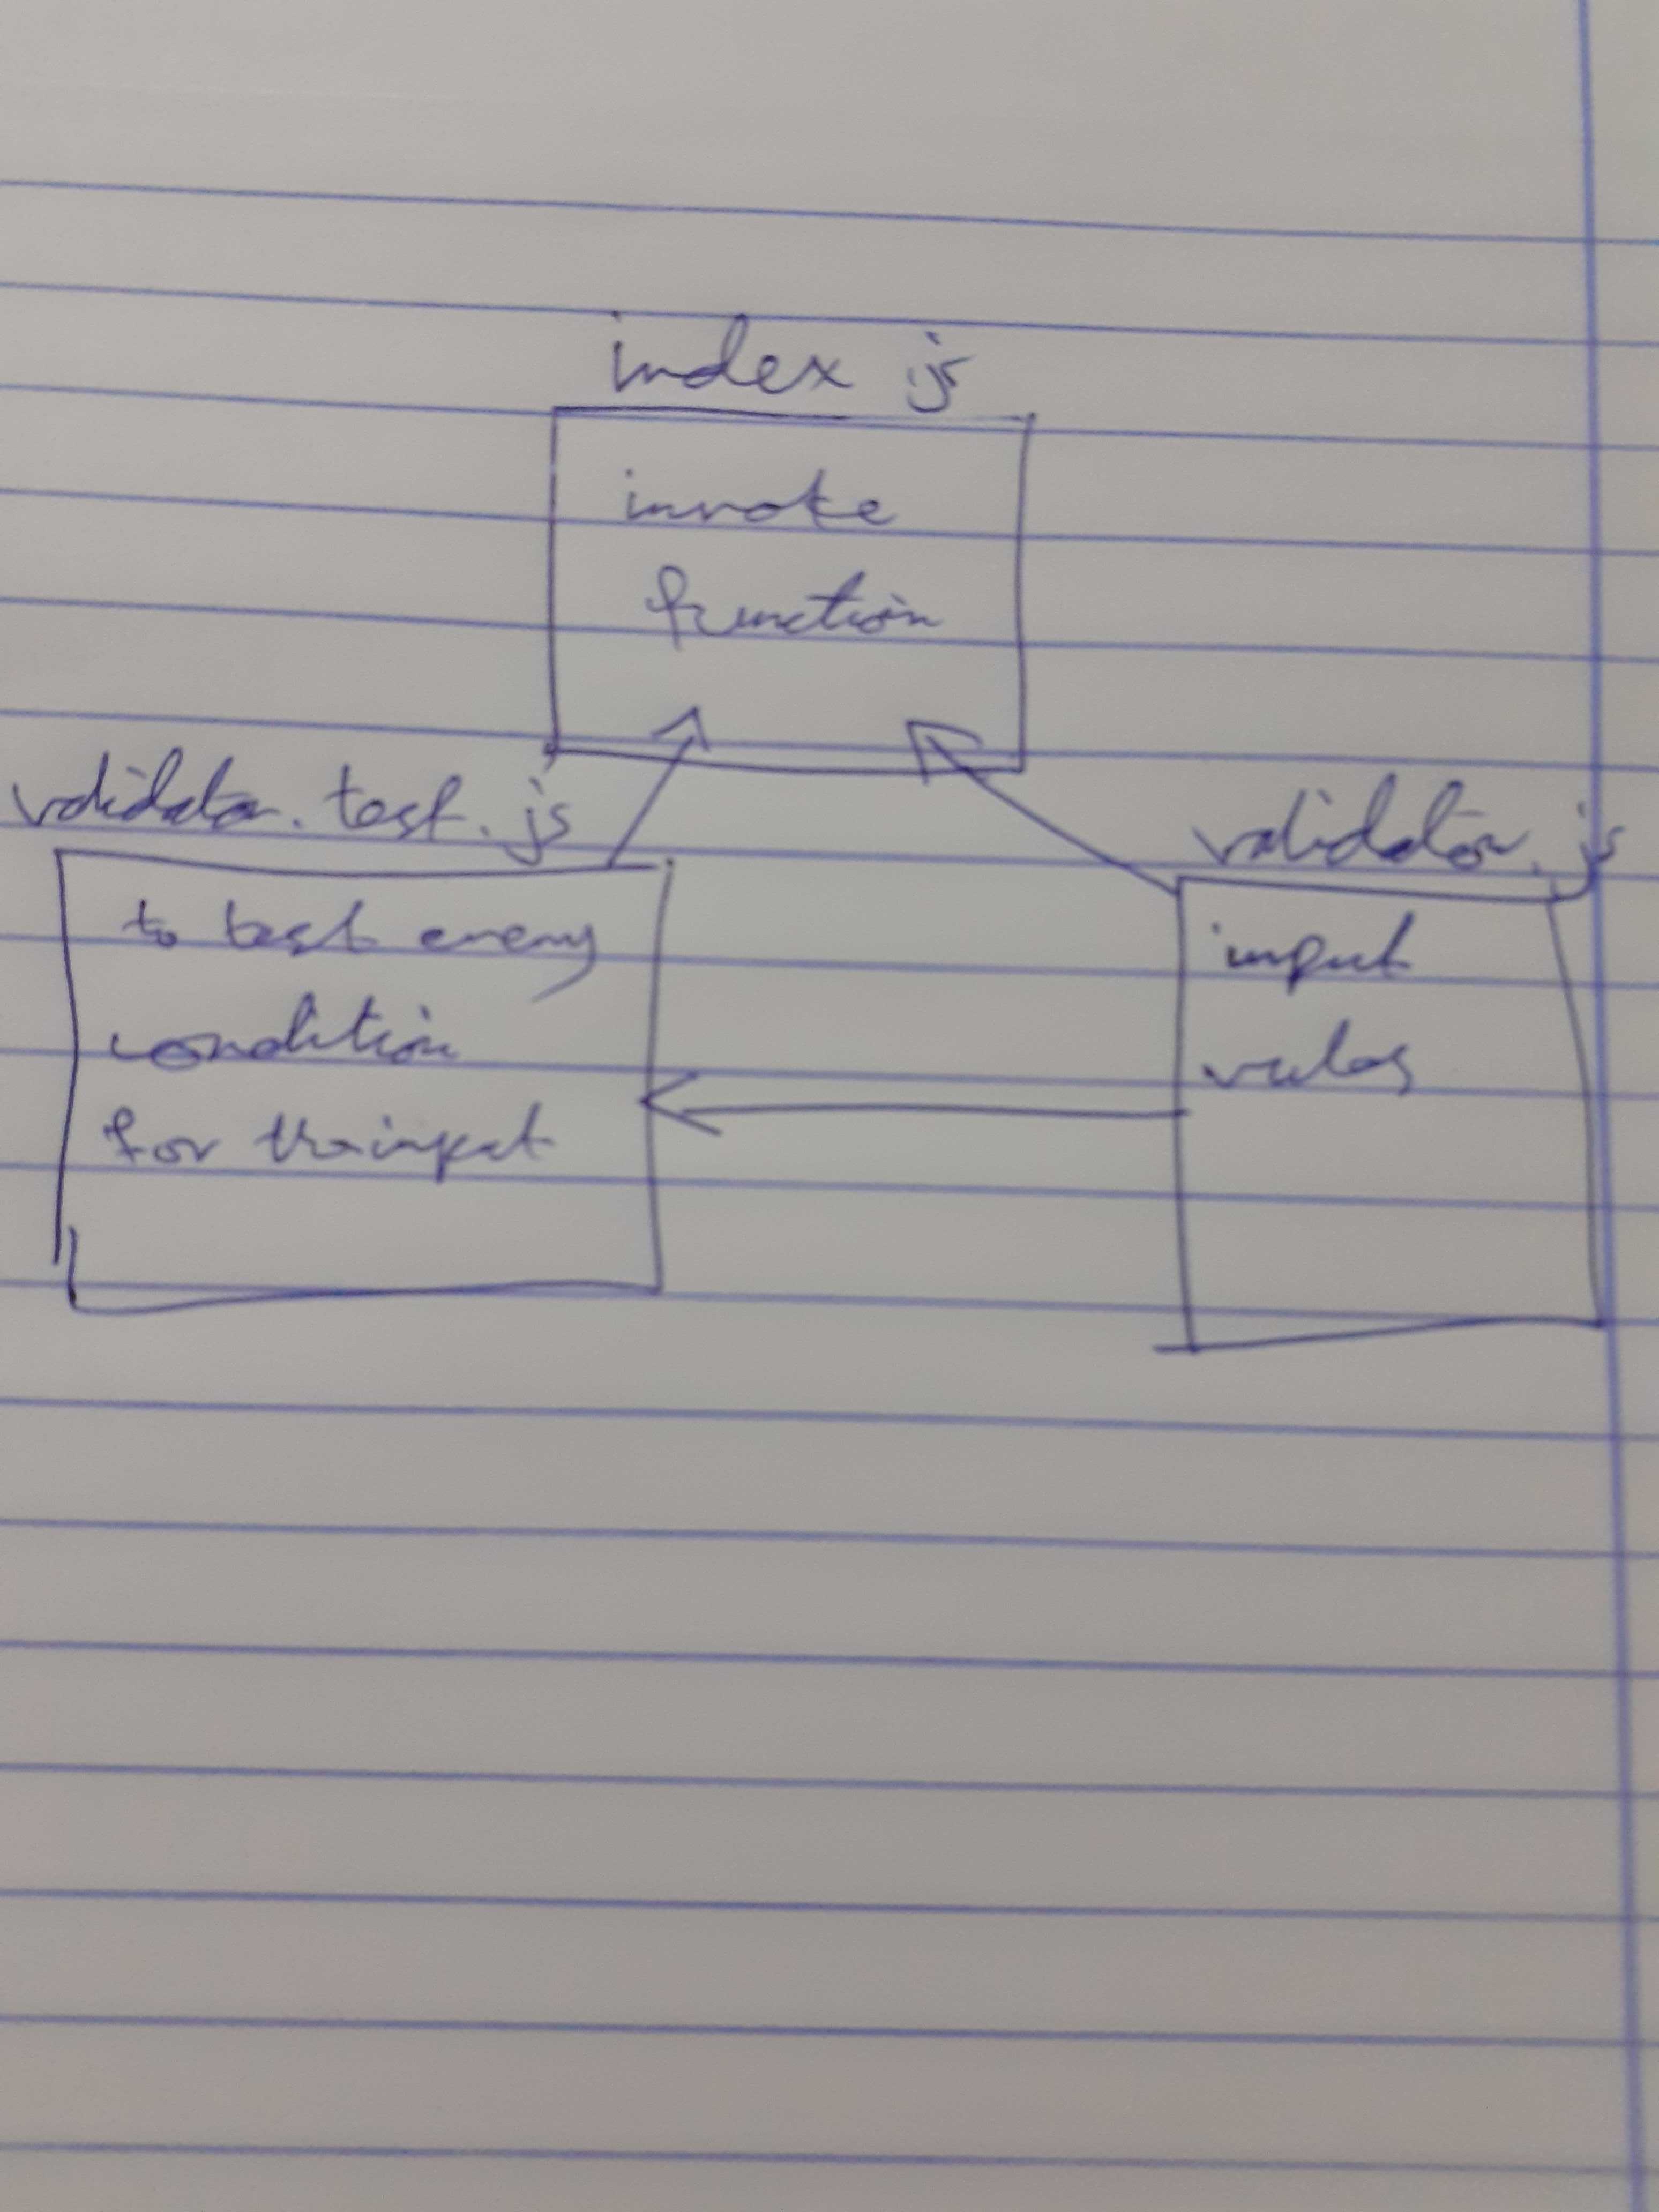 index js
invoke
function
validator.test.js
to test every
condition
for the input
validator.js
input
rules